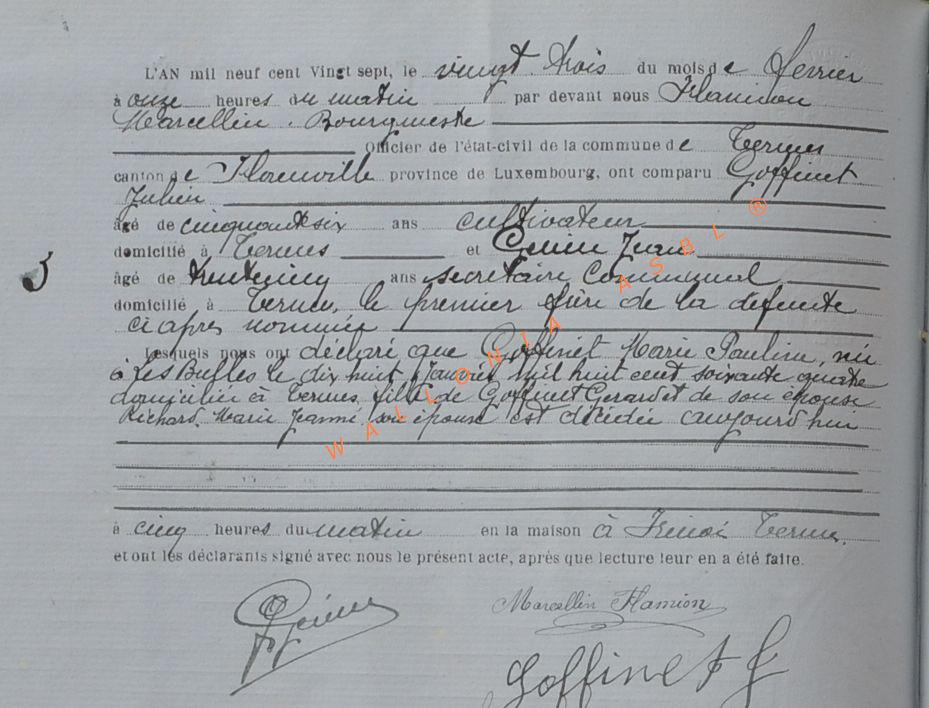 L'AN mil neuf cent Vingt sept, le vingt trois du mois de février
à onze heures du matin par devant nous Flamion
Marcellin, Bourgmestre
Officier de l'état-civil de la commune de Termes
canton de Florenville province de Luxembourg, ont comparu Goffinet
Julien
âgé de cinquante six ans cultivateur
domicilié à Termes et
5
âgé de trente cinq ans secrétaire Communal
domicilié à Termes, le premier frère de la défunte
ci après nommée
Lesquels nous ont déclaré que Goffinet Marie Pauline, née
à Les Bulles le dix huit Janvier mil huit cent soixante quatre
domiciliée à Termes, fille de Goffinet Gerard et de son épouse
Richard, Marie Jeanne son épouse est décédée aujourd'hui
à cinq heures du matin en la maison à Termes,
et ont les déclarants signé avec nous le présent acte, après que lecture leur en a été faite.
Marcellin Flamion
Goffinet J
WALLONIA ASBL ®